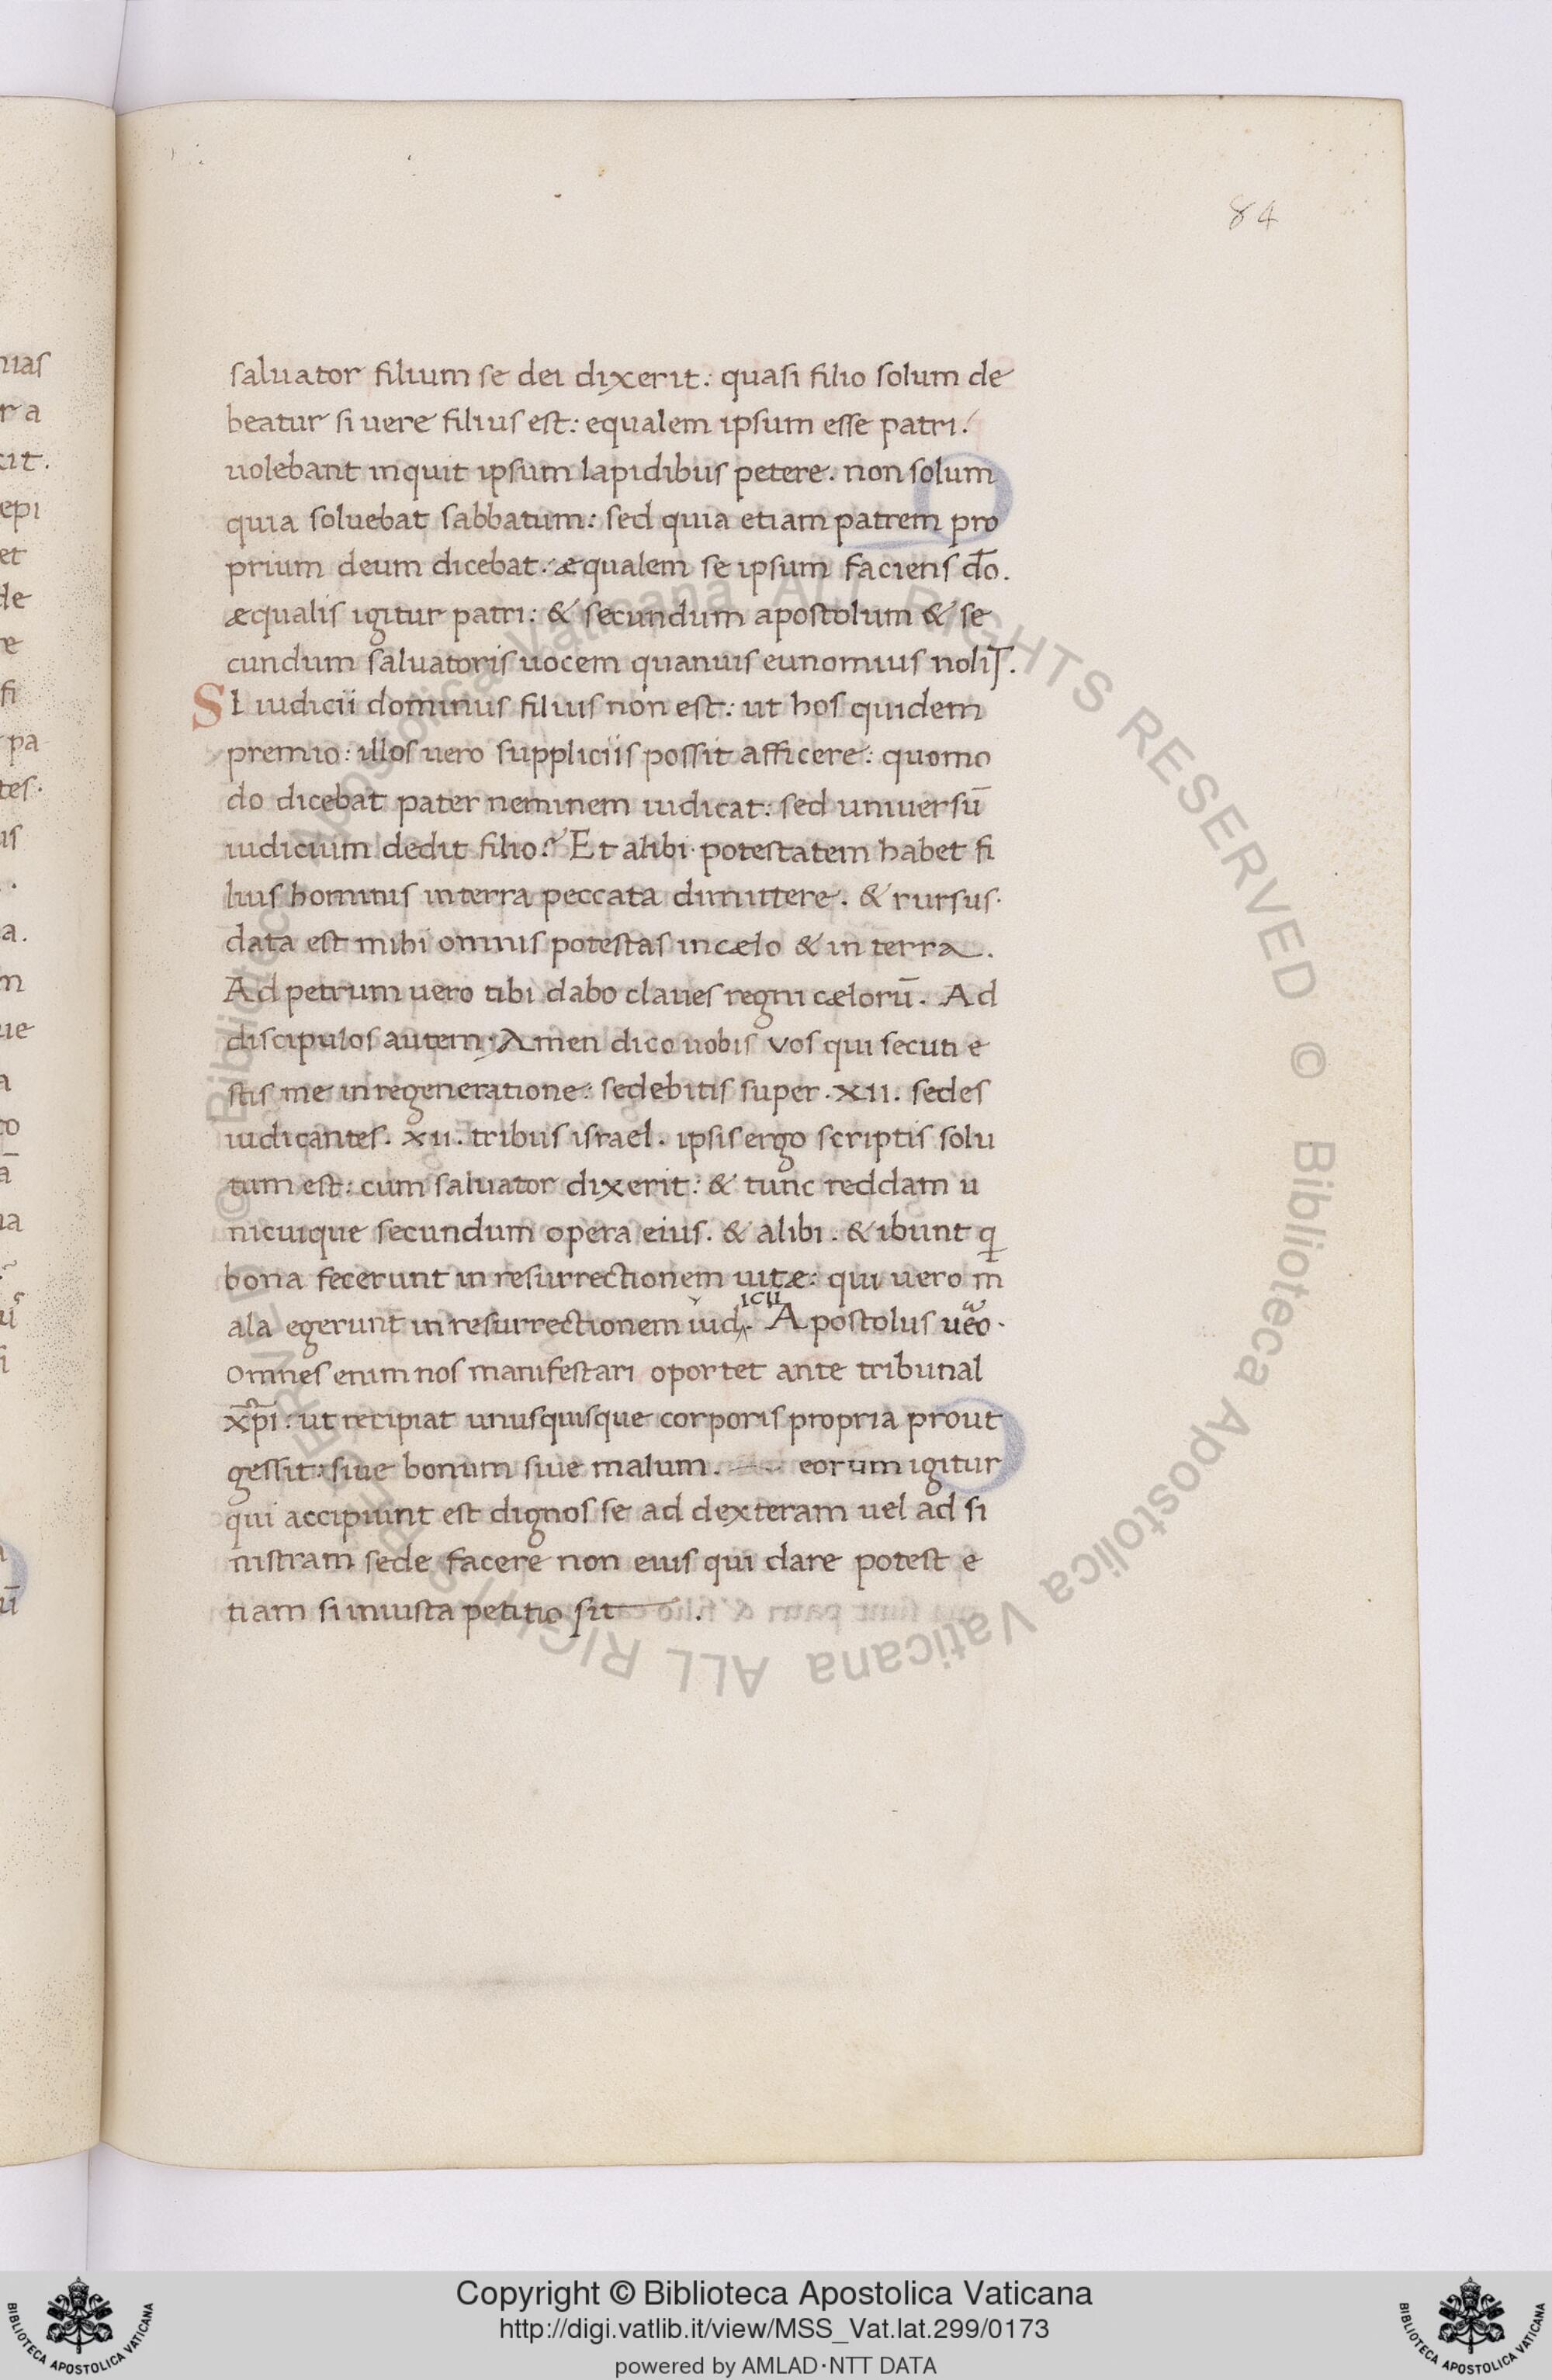 84
saluator filium se dei dixerit: quasi filio solum de
beatur si uere filius est: equalem ipsum esse patri.
uolebant inquit ipsum lapidibus petere. non solum
quia soluebat sabbatum: sed quia etiam patrem pro
prium deum dicebat. æqualem se ipsum faciens do̅.
æqualis igitur patri: & secundum apostolum & se
cundum saluatoris uocem quanuis eunomius nolit.
SI iudicii dominus filius non est: ut hos quidem
premio: illos uero suppliciis possit afficere: quomo
do dicebat pater neminem iudicat: sed uniuersū
iudicium dedit filio? Et alibi. potestatem habet fi
lius hominis in terra peccata dimittere. & rursus.
data est mihi omnis potestas in cælo & in terra.
Ad petrum uero tibi dabo claues regni cælorū. Ad
discipulos autem. Amen dico uobis vos qui secuti e
stis me in regeneratione: sedebitis super .xii. sedes
iudicantes .xii. tribus israel. ipsis ergo scriptis solu
tum est: cum saluator dixerit: & tunc reddam u
nicuique secundum opera eius. & alibi. & ibunt q
bona fecerunt in resurrectionem uitæ: qui uero m
ala egerunt in resurrectionem iudicii. Apostolus uero.
Omnes enim nos manifestari oportet ante tribunal
xp̅i: ut recipiat unusquisque corporis propria prout
gessit: siue bonum siue malum. eorum igitur
qui accipiunt est dignos se ad dexteram uel ad si
nistram sede facere non eius qui dare potest e
tiam si iniusta petitio sit.
nias
r a
cit.
epi
et
de
re
fi
pa
tes.
us
a.
m
ue
a
co
a̅
na
ū
© Biblioteca Apostolica Vaticana ALL RIGHTS RESERVED © Biblioteca Apostolica Vaticana ALL RIGHTS RESERVED
Copyright © Biblioteca Apostolica Vaticana
http://digi.vatlib.it/view/MSS_Vat.lat.299/0173
powered by AMLAD·NTT DATA
BIBLIOTECA APOSTOLICA VATICANA
BIBLIOTECA APOSTOLICA VATICANA